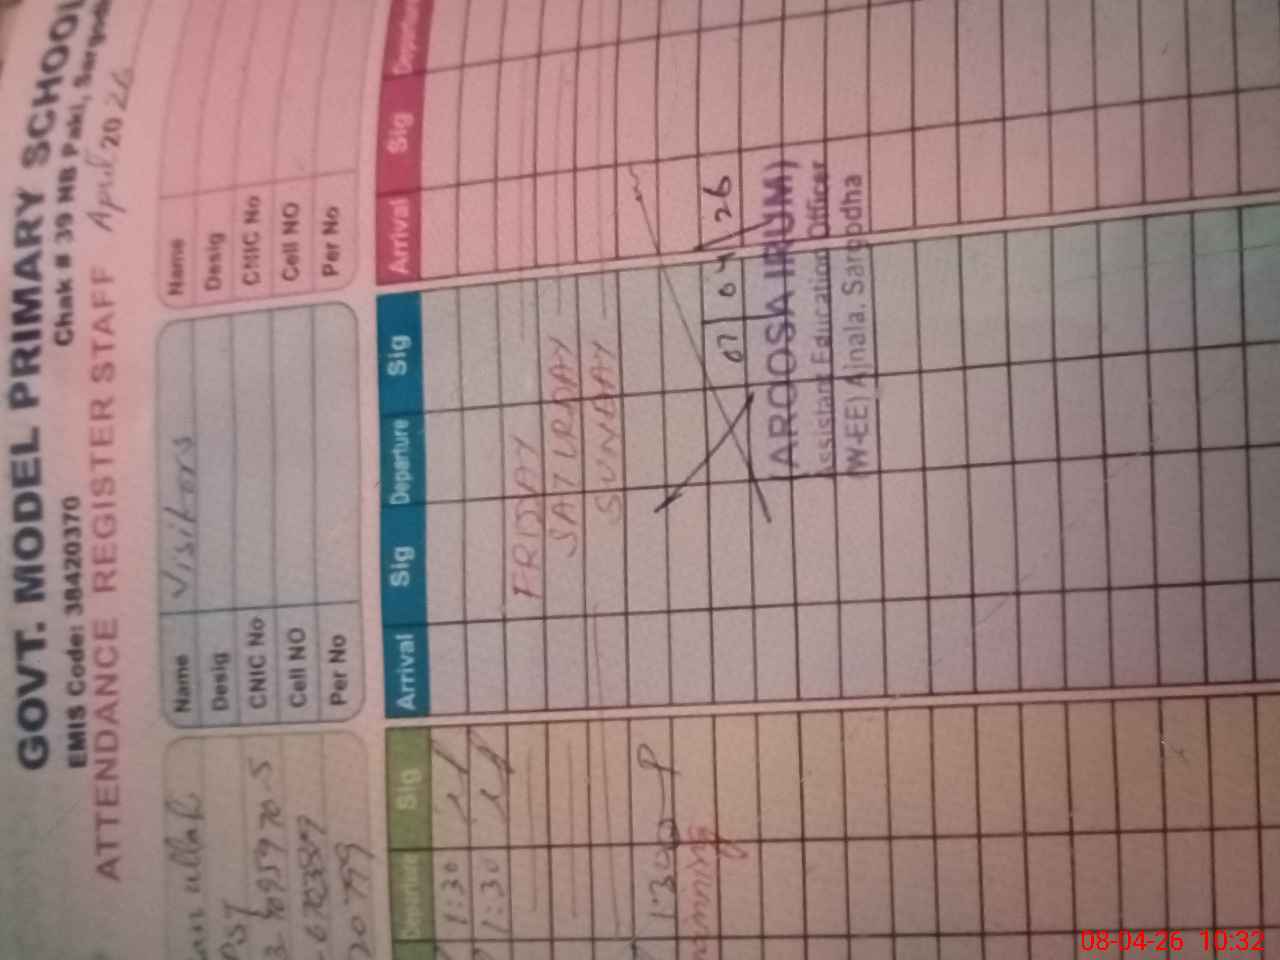 GOVT. MODEL PRIMARY SCHOOL
EMIS Code: 38420370 Chak # 39 NB Paki, Sargod
ATTENDANCE REGISTER STAFF April 2026
ullah
20799
Name Visitors
Desig
CNIC No
Cell NO
Per No
Name
Desig
CNIC No
Cell NO
Per No
Departure Sig
Arrival Sig Departure Sig
Arrival Sig Departure
1:30
1:30
FRIDAY
SATURDAY
SUNDAY
1:30
07/04/26
(AROOSA IRUM)
Assistant Education Officer
(W-EE) Ajnala, Sargodha
08-04-26 10:32